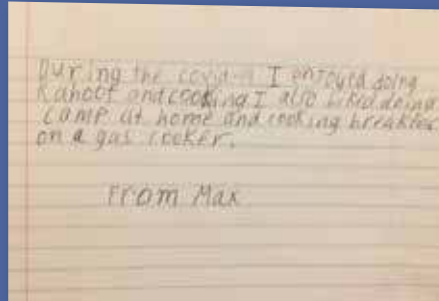 During the covid-19 I enjoyed doing
Kahoot and cooking I also liked doing
camp at home and cooking breakfast
on a gas cooker.
From Max